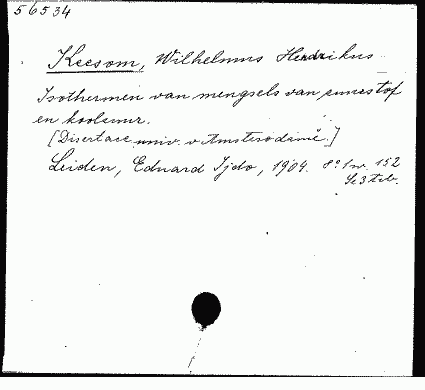 56534
Keesom, Wilhelmus Hendrikus
Isothermen van mengsels van zuurstof
en koolzuur.
[Disertace univ. v Amsterodamě.]
Leiden, Eduard Ijdo, 1904. 8° 1 sv. 152
Se 3 tab.